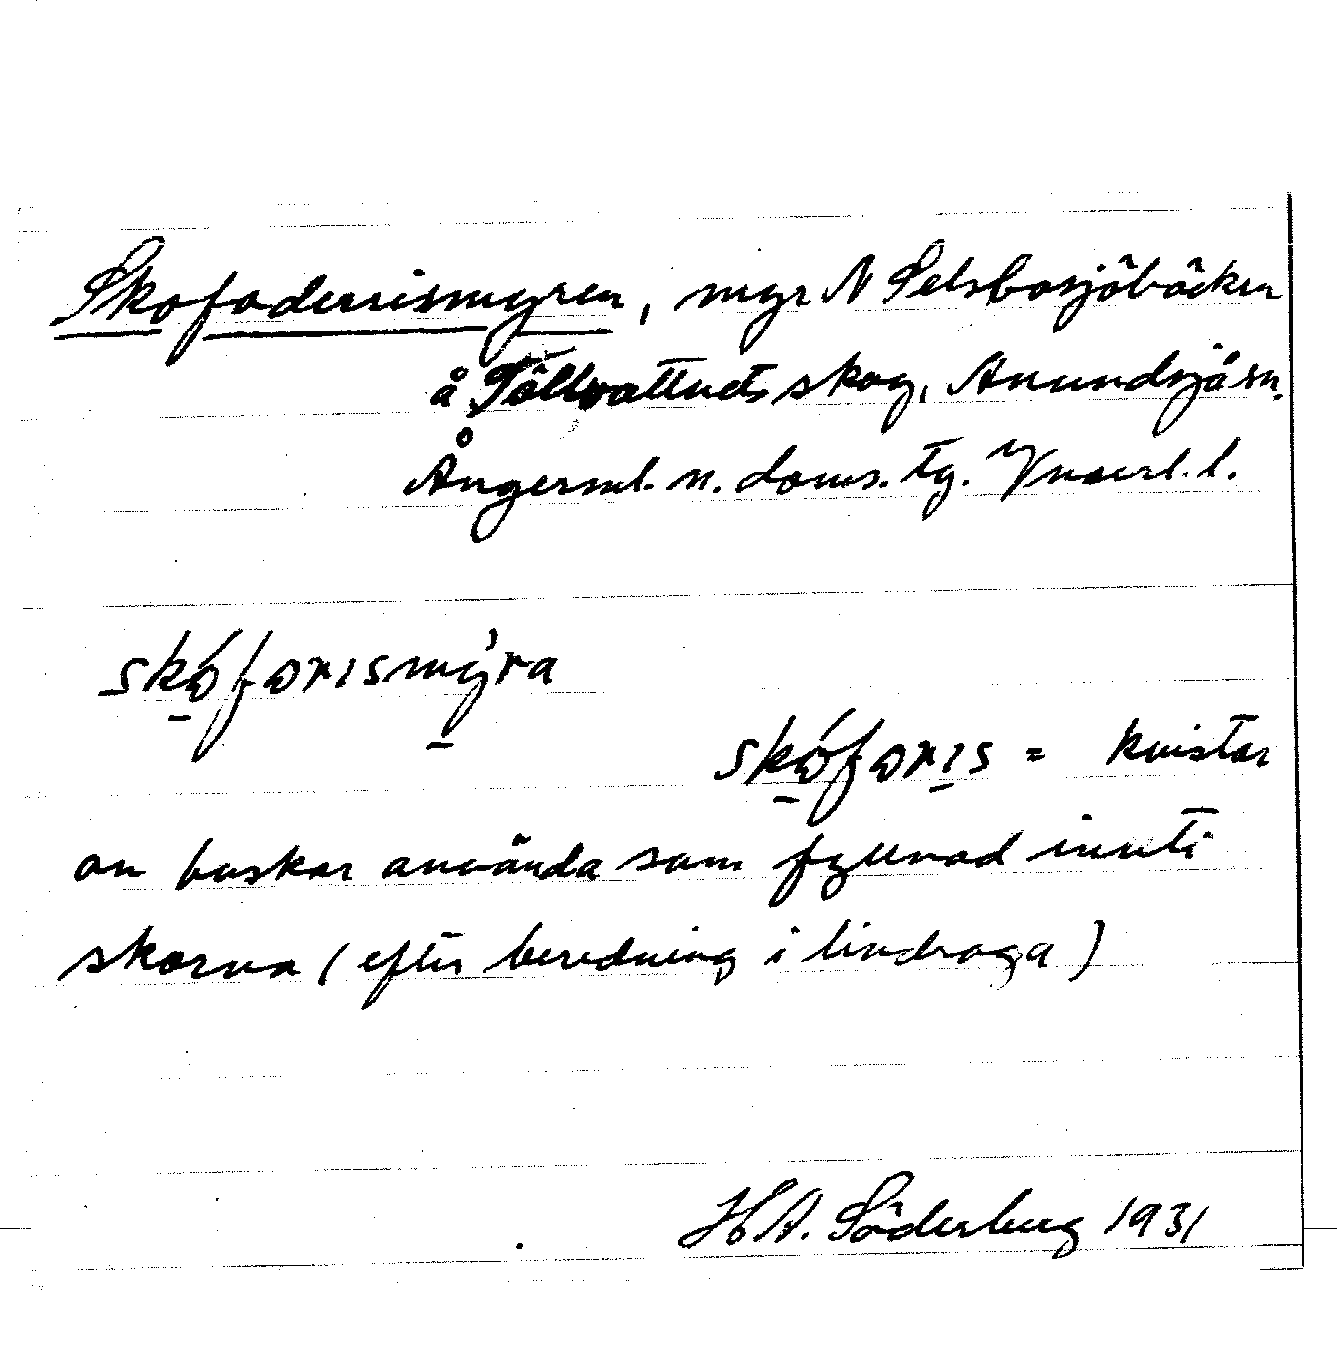 Skofoderrismyren, myr N Selsbosjöbäcken
å Tällvattnets skog, Anundsjö sn.
Ångerml. n. doms. tg. Vnorrl. l.
skóforismỳra
skóforis = kvistar
av buskar använda som fyllnad inuti
skorna (efter beredning i lindraga)
H A. Söderberg 1931